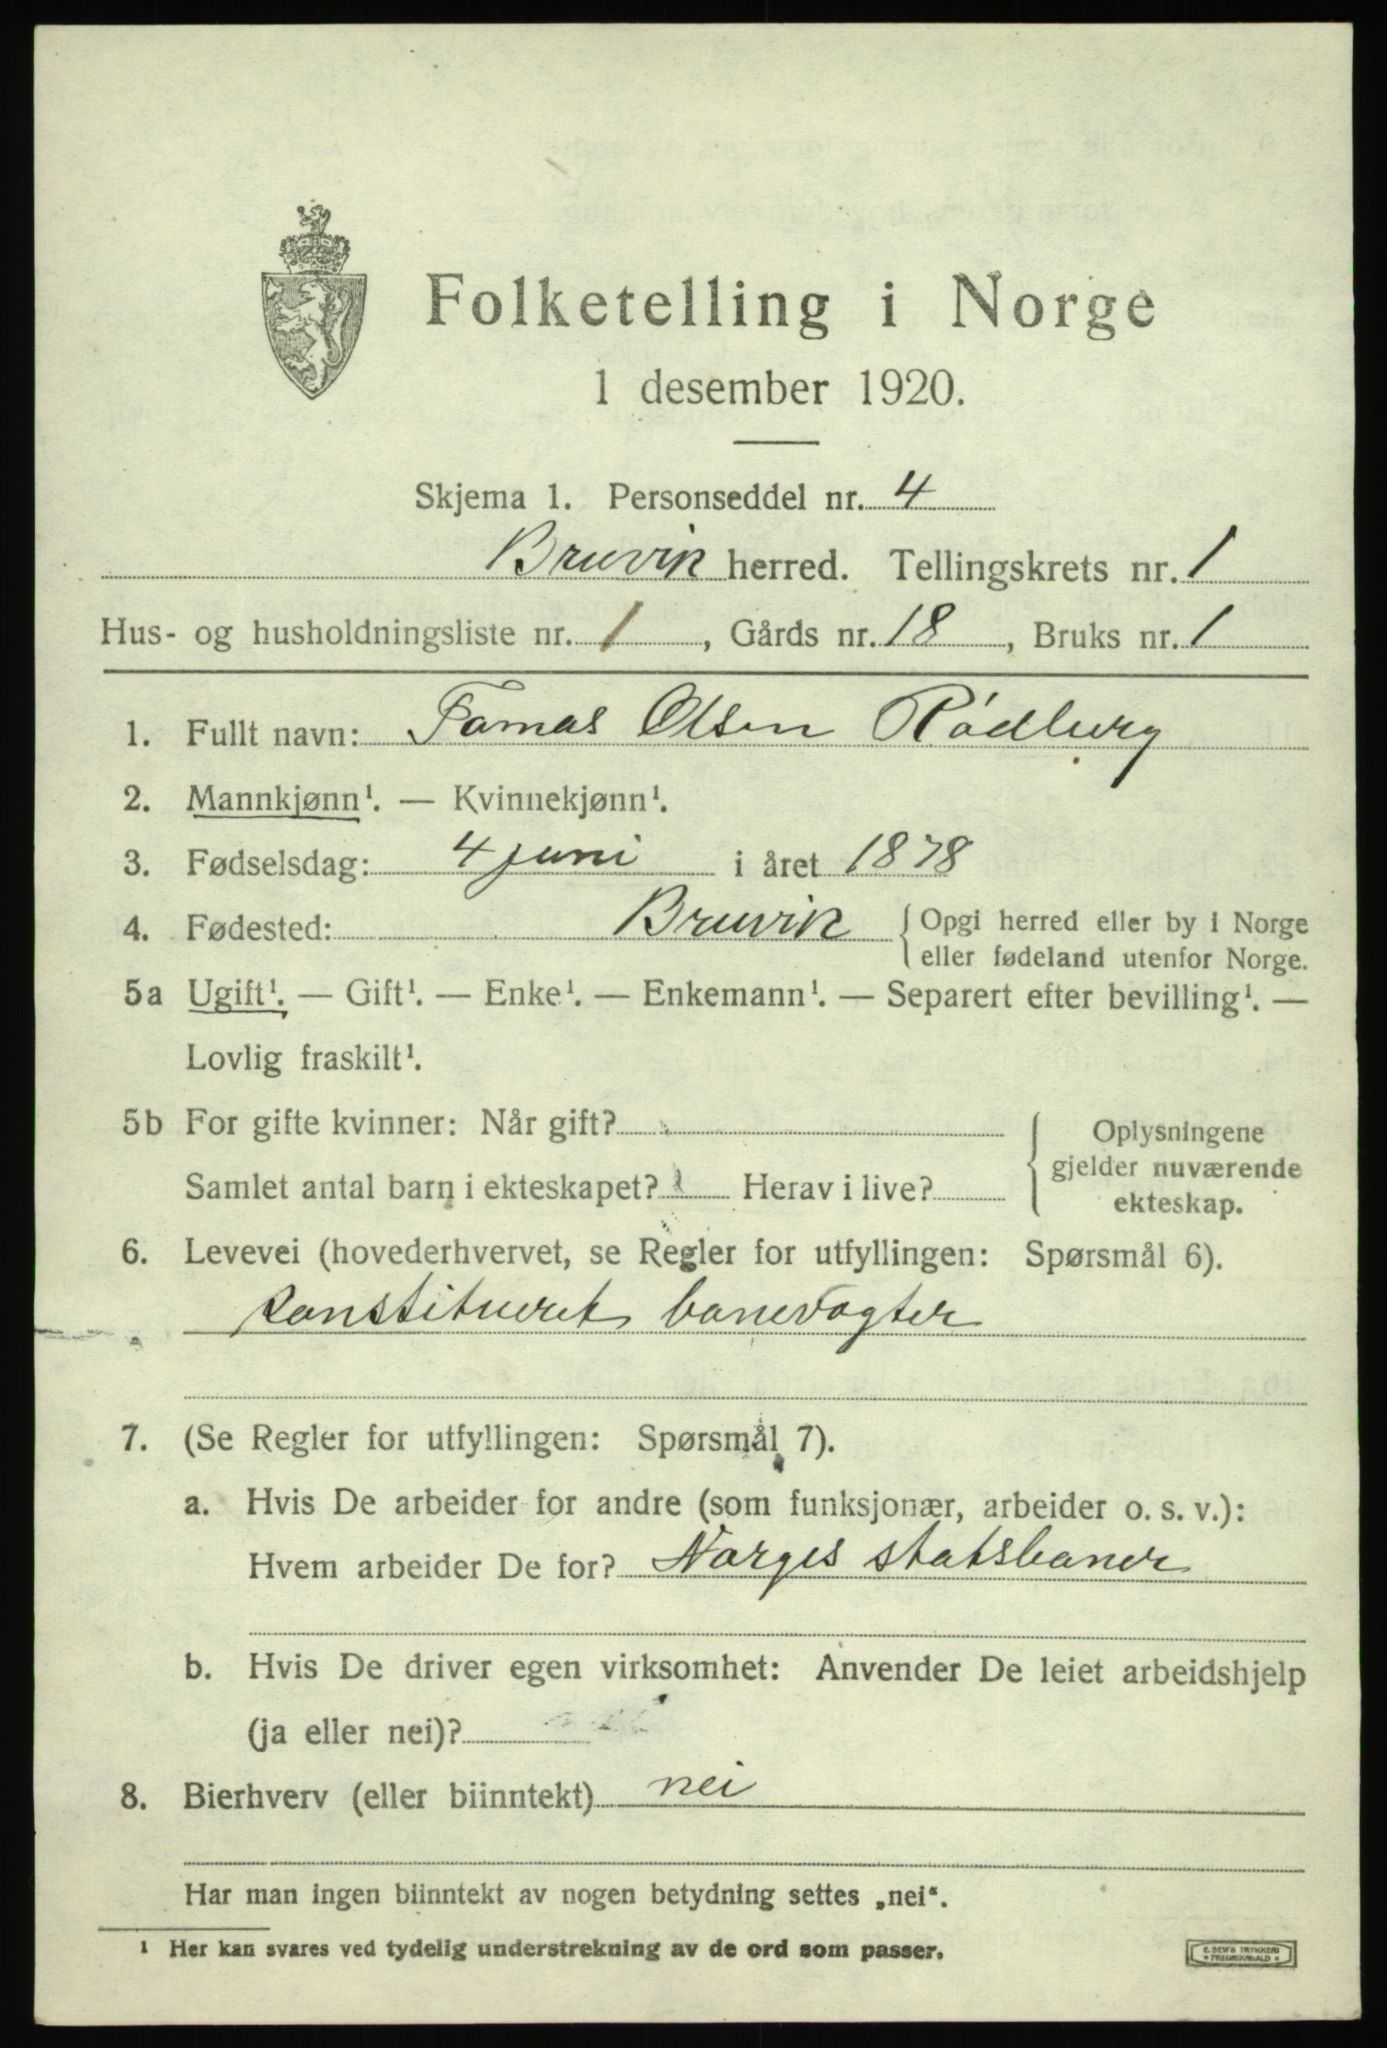 Folketelling i Norge
1 desember 1920.
Skjema 1. Personseddel nr. 4
Bruvik herred. Tellingskrets nr. 1
Hus- og husholdningsliste nr. 1, Gårds nr. 18, Bruks nr. 1
1. Fullt navn: Tomas Olsen Rødburg
2. Mannkjønn¹. — Kvinnekjønn¹.
3. Fødselsdag: 4 juni i året 1878
4. Fødested: Bruvik { Opgi herred eller by i Norge
eller fødeland utenfor Norge.
5a Ugift¹. — Gift¹. — Enke¹. — Enkemann¹. — Separert efter bevilling¹. —
Lovlig fraskilt¹.
5b For gifte kvinner: Når gift?
Samlet antal barn i ekteskapet? Herav i live?
Oplysningene
gjelder nuværende
ekteskap.
6. Levevei (hovederhvervet, se Regler for utfyllingen: Spørsmål 6).
konstitueret banevogter
7. (Se Regler for utfyllingen: Spørsmål 7).
a. Hvis De arbeider for andre (som funksjonær, arbeider o. s. v.):
Hvem arbeider De for? Norges statsbaner
b. Hvis De driver egen virksomhet: Anvender De leiet arbeidshjelp
(ja eller nei)?
8. Bierhverv (eller biinntekt) nei
Har man ingen biinntekt av nogen betydning settes „nei“.
¹ Her kan svares ved tydelig understrekning av de ord som passer.
E. SEM'S TRYKKERI
FREDRIKSHALD